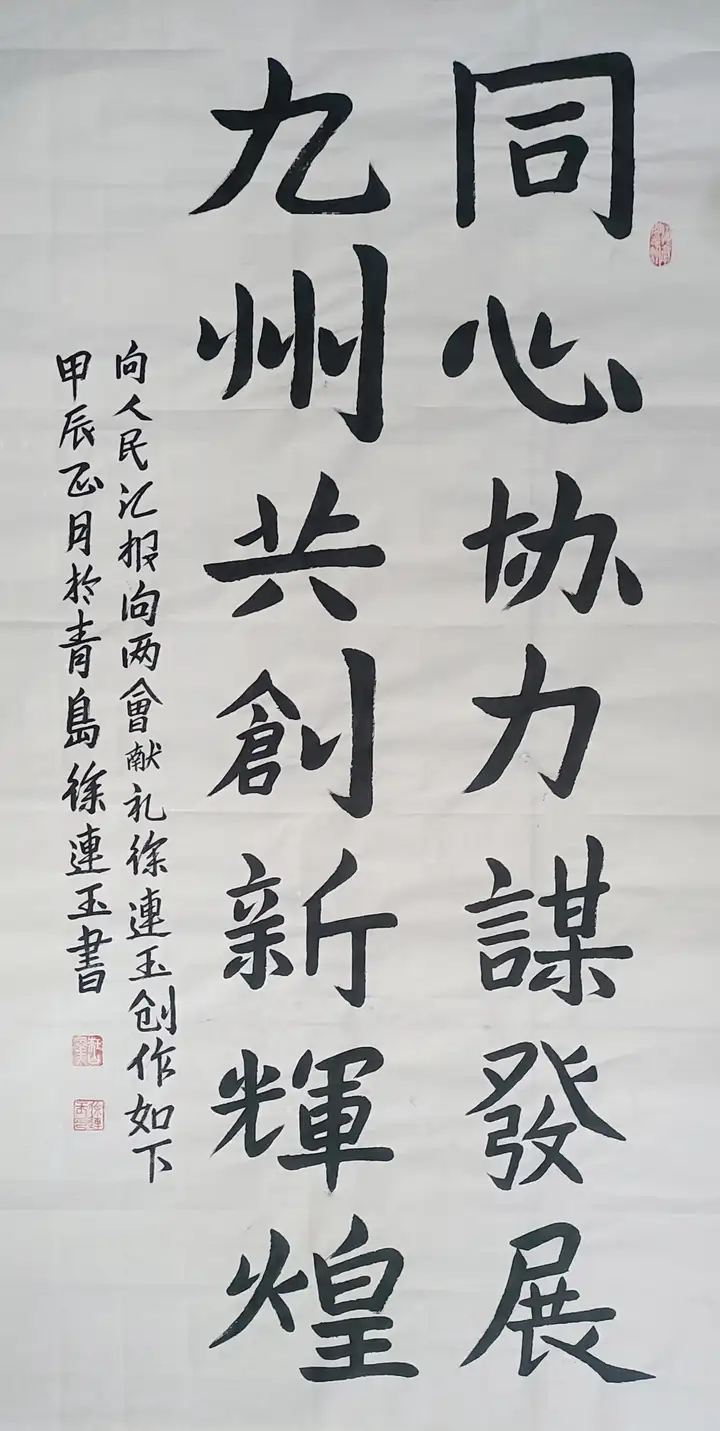 同心协力謀發展
九州共創新輝煌
向人民汇报向两會献礼徐連玉创作如下
甲辰正月於青島徐連玉書